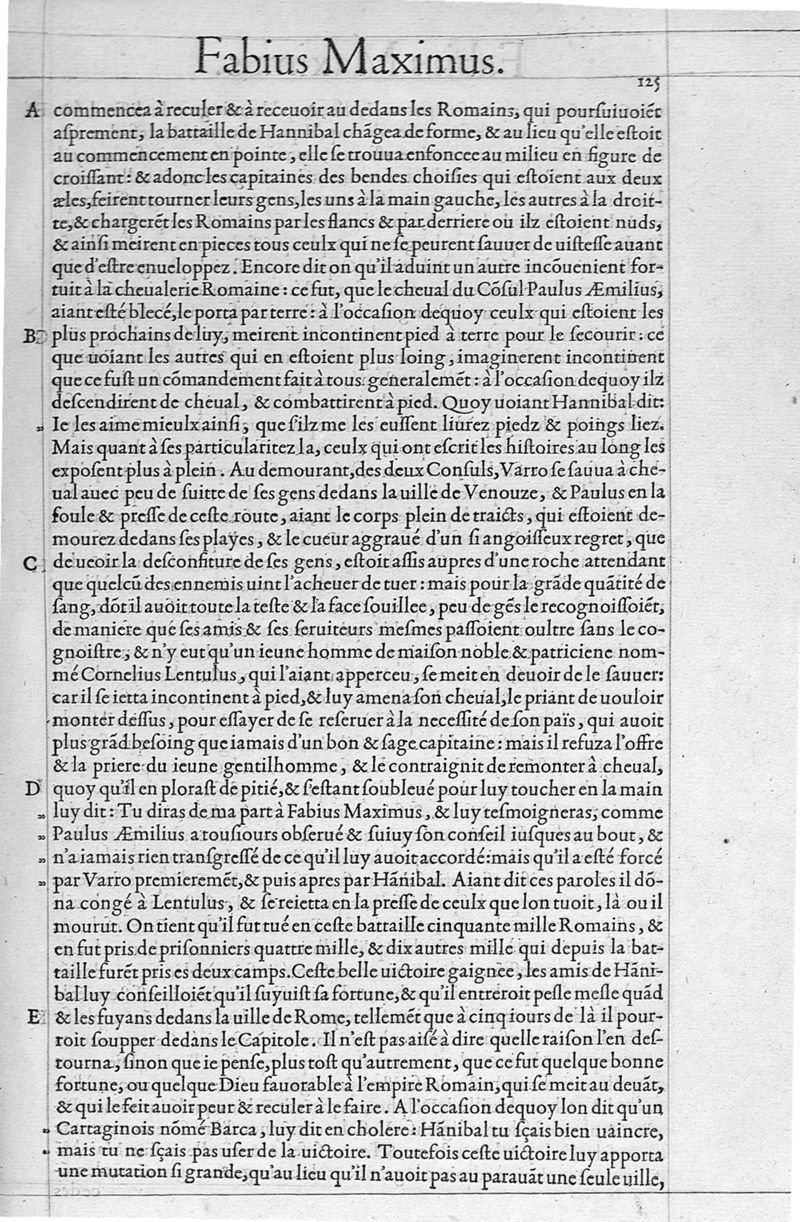 Fabius Maximus.
125
A commencea à reculer & à receuoir au dedans les Romains, qui pourſuiuoiẽt
aſprement, la battaille de Hannibal chãgea de forme, & au lieu qu'elle eſtoit
au commencement en pointe, elle ſe trouua enfoncee au milieu en figure de
croiſſant: & adonc les capitaines des bendes choiſies qui eſtoient aux deux
æles, feirent tourner leurs gens, les uns à la main gauche, les autres à la droit-
te, & chargerẽt les Romains par les flancs & par derriere ou ilz eſtoient nuds,
& ainſi meirent en pieces tous ceulx qui ne ſe peurent ſauuer de uiſteſſe auant
que d'eſtre enueloppez. Encore dit on qu'il aduint un autre incõuenient for-
tuit à la cheualerie Romaine: ce fut, que le cheual du Cõſul Paulus Æmilius,
aiant eſté blecé, le porta par terre: à l'occaſion dequoy ceulx qui eſtoient les
B plus prochains de luy, meirent incontinent pied à terre pour le ſecourir: ce
que uoiant les autres qui en eſtoient plus loing, imaginerent incontinent
que ce fuſt un cõmandement fait à tous generalemẽt: à l'occaſion dequoy ilz
deſcendirent de cheual, & combattirent à pied. Quoy uoiant Hannibal dit:
„ Ie les aime mieulx ainſi, que ſ'ilz me les euſſent liurez piedz & poings liez.
Mais quant à ſes particularitez la, ceulx qui ont eſcrit les hiſtoires au long les
expoſent plus à plein. Au demourant, des deux Conſuls, Varro ſe ſauua à che-
ual auec peu de ſuitte de ſes gens dedans la uille de Venouze, & Paulus en la
foule & preſſe de ceſte route, aiant le corps plein de traicts, qui eſtoient de-
mourez dedans ſes playes, & le cueur aggraué d'un ſi angoiſſeux regret, que
C de ueoir la deſconfiture de ſes gens, eſtoit aſſis aupres d'une roche attendant
que quelcũ des ennemis uint l'acheuer de tuer: mais pour la grãde quãtité de
ſang, dõt il auoit toute la teſte & la face ſouillee, peu de gẽs le recognoiſſoiẽt,
de maniere que ſes amis & ſes ſeruiteurs meſmes paſſoient oultre ſans le co-
gnoiſtre, & n'y eut qu'un ieune homme de maiſon noble & patriciene nom-
mé Cornelius Lentulus, qui l'aiant apperceu, ſe meit en deuoir de le ſauuer:
car il ſe ietta incontinent à pied, & luy amena ſon cheual, le priant de uouloir
monter deſſus, pour eſſayer de ſe reſeruer à la neceſſité de ſon païs, qui auoit
plus grãd beſoing que iamais d'un bon & ſage capitaine: mais il refuza l'offre
& la priere du ieune gentilhomme, & le contraignit de remonter à cheual,
D quoy qu'il en ploraſt de pitié, & ſ'eſtant ſoubleué pour luy toucher en la main
„ luy dit: Tu diras de ma part à Fabius Maximus, & luy teſmoigneras, comme
„ Paulus Æmilius a touſiours obſerué & ſuiuy ſon conſeil iuſques au bout, &
„ n'a iamais rien tranſgreſſé de ce qu'il luy auoit accordé: mais qu'il a eſté forcé
„ par Varro premieremẽt, & puis apres par Hãnibal. Aiant dit ces paroles il dõ-
na congé à Lentulus, & ſe reietta en la preſſe de ceulx que lon tuoit, là ou il
mourut. On tient qu'il fut tué en ceſte battaille cinquante mille Romains, &
en fut pris de priſonniers quattre mille, & dix autres mille qui depuis la bat-
taille furẽt pris es deux camps. Ceſte belle uictoire gaignee, les amis de Hãni-
bal luy conſeilloiẽt qu'il ſuyuiſt ſa fortune, & qu'il entreroit peſle meſle quãd
E & les fuyans dedans la uille de Rome, tellemẽt que à cinq iours de là il pour-
roit ſoupper dedans le Capitole. Il n'eſt pas aiſé à dire quelle raiſon l'en deſ-
tourna, ſinon que ie penſe, plus toſt qu'autrement, que ce fut quelque bonne
fortune, ou quelque Dieu fauorable à l'empire Romain, qui ſe meit au deuãt,
& qui le feit auoir peur & reculer à le faire. A l'occaſion dequoy lon dit qu'un
„ Cartaginois nõmé Barca, luy dit en cholere: Hãnibal tu ſçais bien uaincre,
„ mais tu ne ſçais pas uſer de la uictoire. Toutefois ceſte uictoire luy apporta
une mutation ſi grande, qu'au lieu qu'il n'auoit pas au parauãt une ſeule uille,